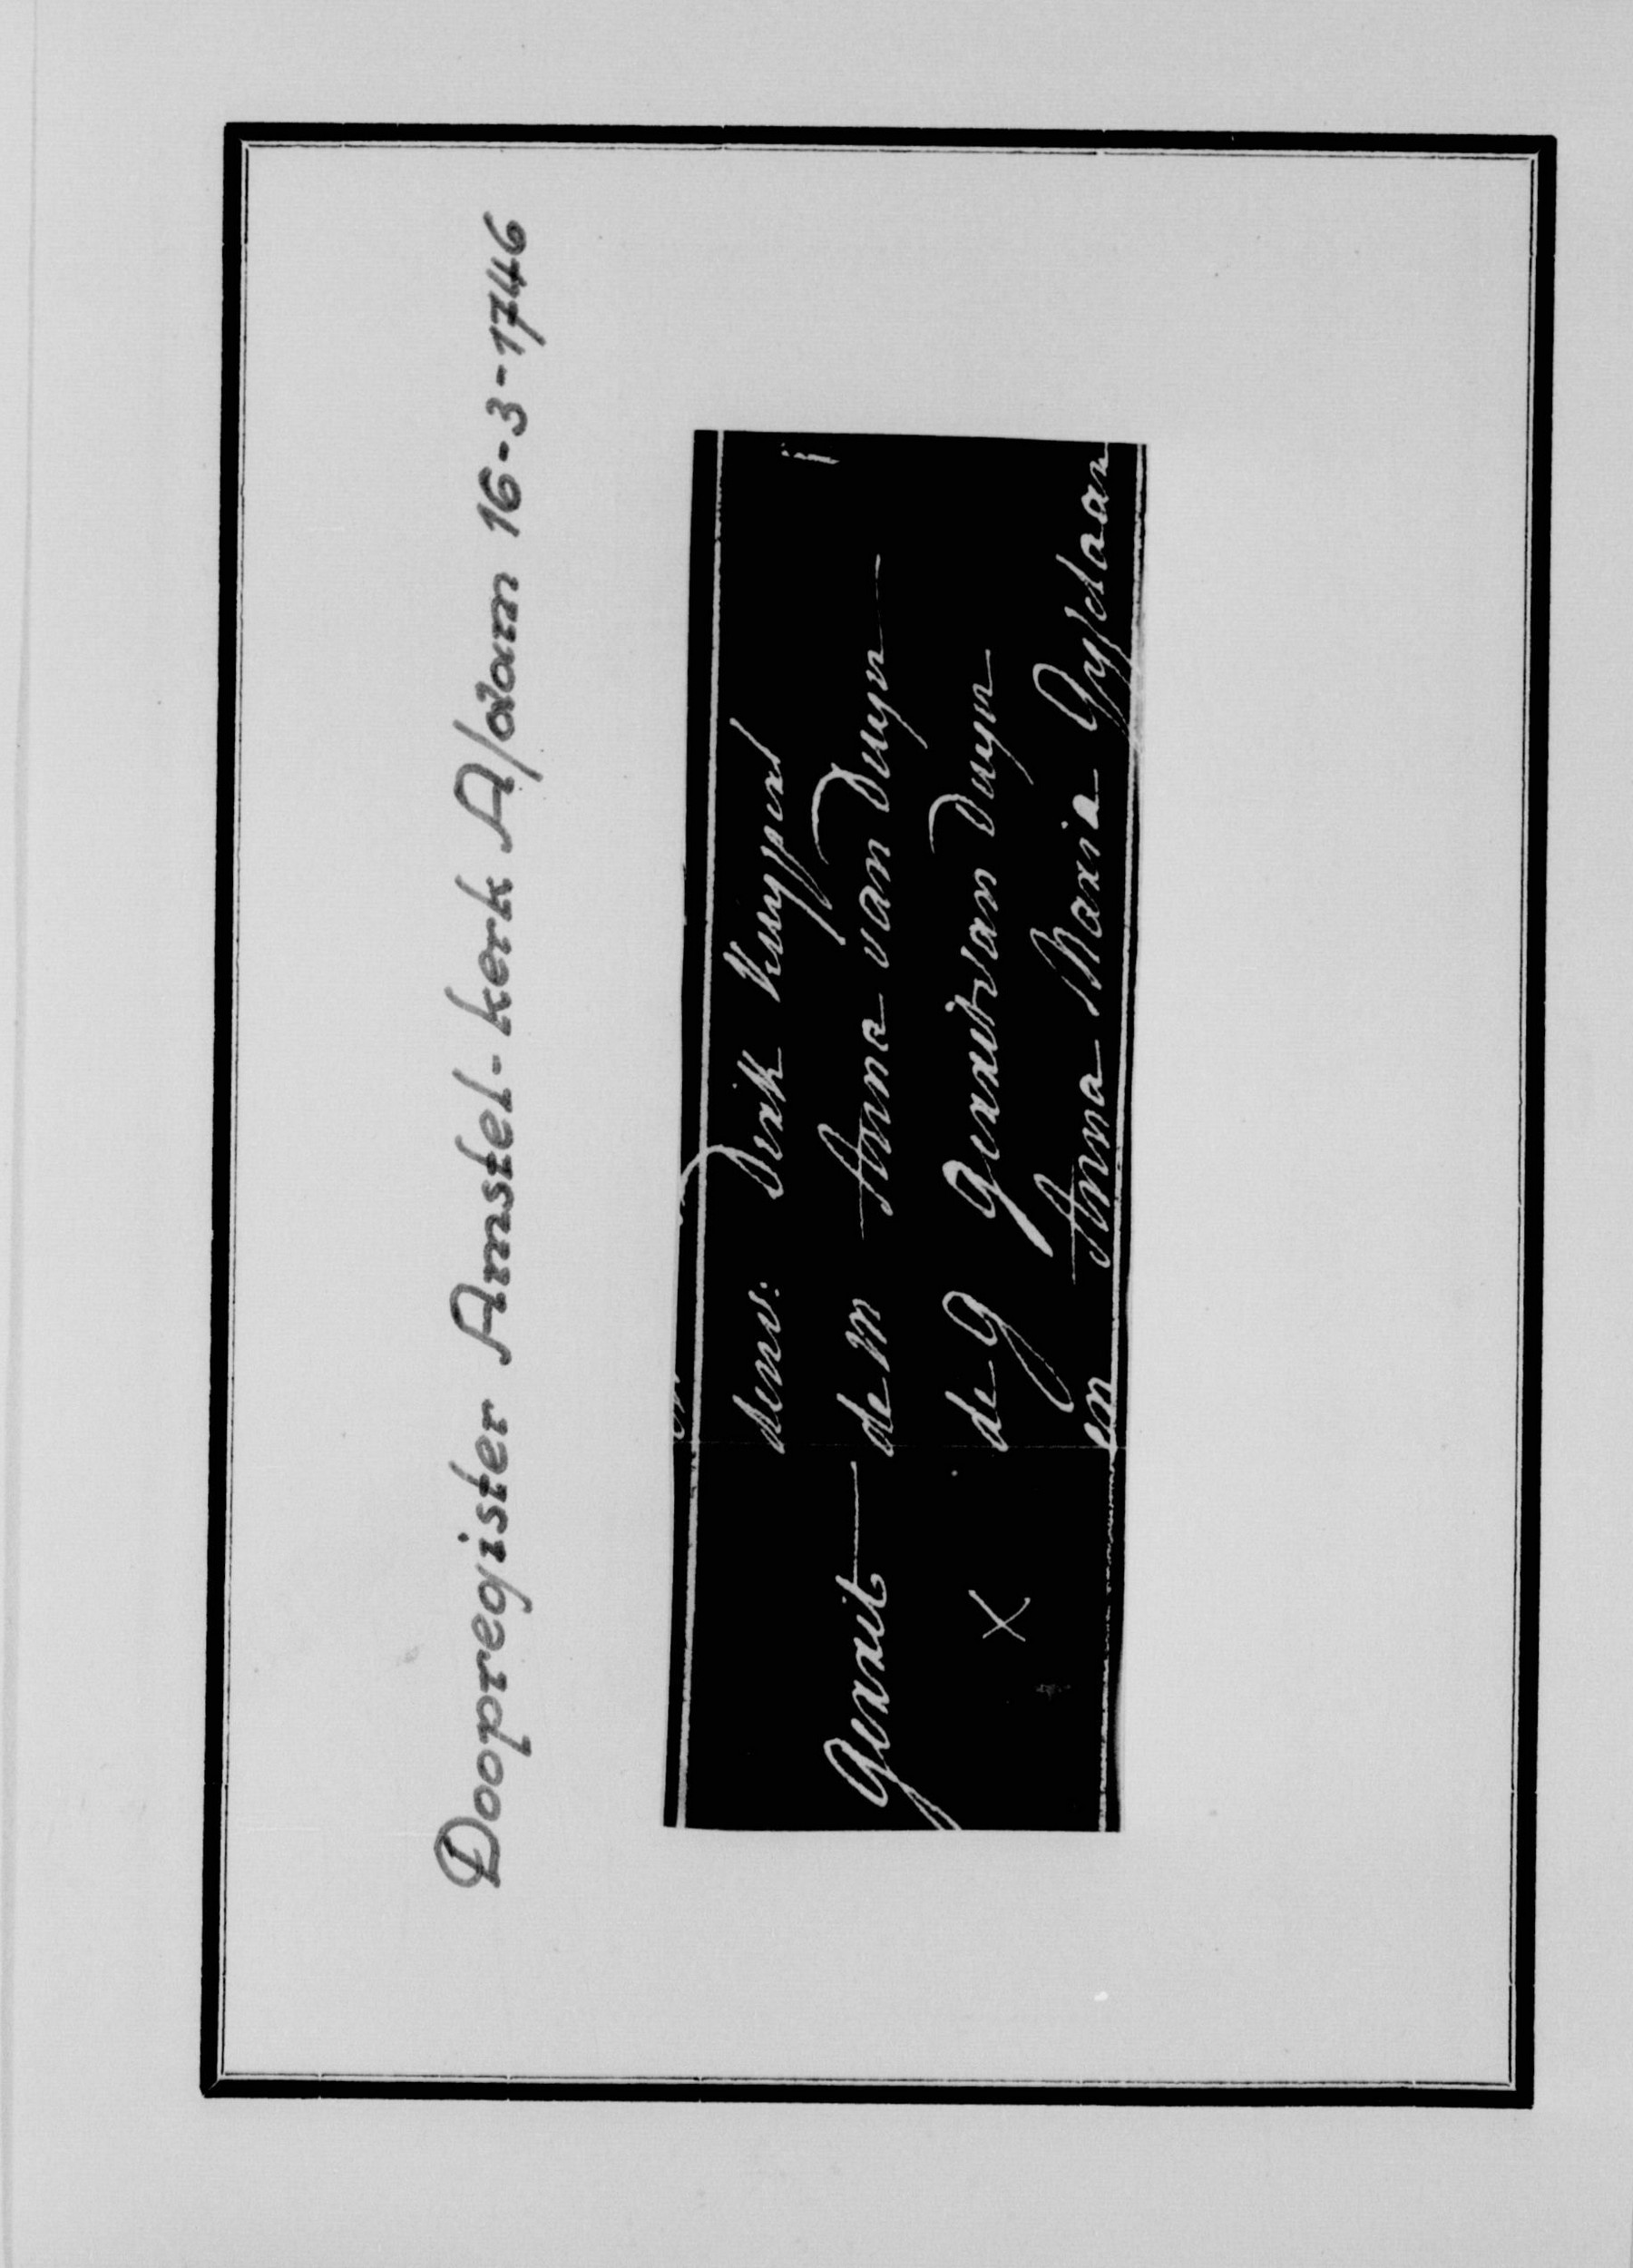 Doopregister Amstel-kerk A/dam 16-3-1746
den v: Dirk Kuyper
Gerrit de m Anna van Duyn
X de G Gerrit van Duyn
en Anna Maria